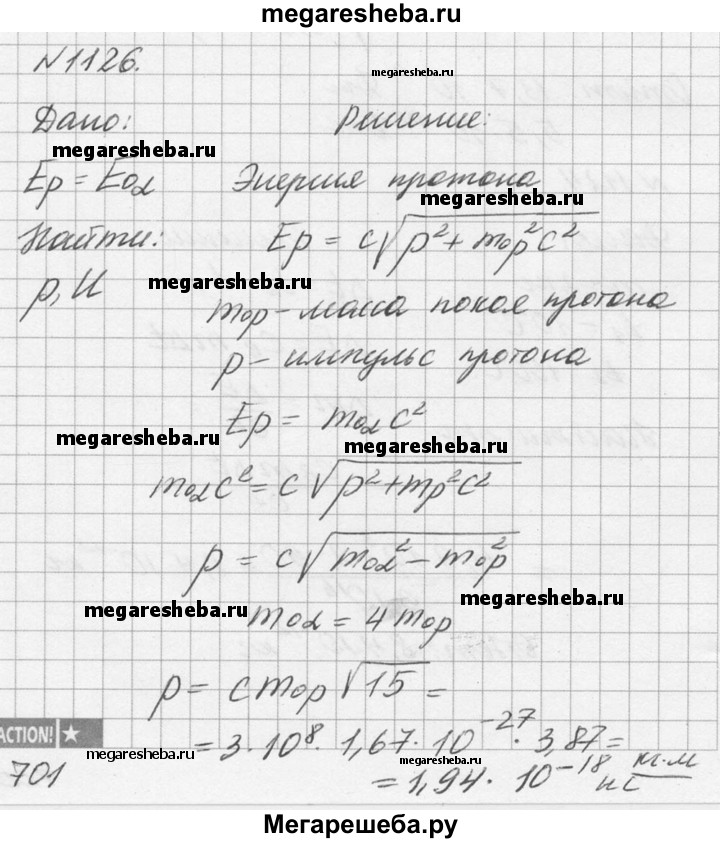 megaresheba.ru
N1126.
megaresheba.ru
Дано: Решение:
megaresheba.ru
Ep = E0α Энергия протона
megaresheba.ru
Найти: Ep = c√(p² + m0p²c²)
megaresheba.ru
p, U m0p - масса покоя протона
p - импульс протона
Ep = m0αc²
megaresheba.ru
megaresheba.ru
m0αc² = c√(p² + mp²c²)
p = c√(m0α² - m0p²)
megaresheba.ru
megaresheba.ru
m0α = 4m0p
p = cm0p√15 =
ACTION!
= 3·10⁸·1,67·10⁻²⁷·3,87 =
megaresheba.ru
megaresheba.ru
701
= 1,94·10⁻¹⁸
Мегарешеба.ру